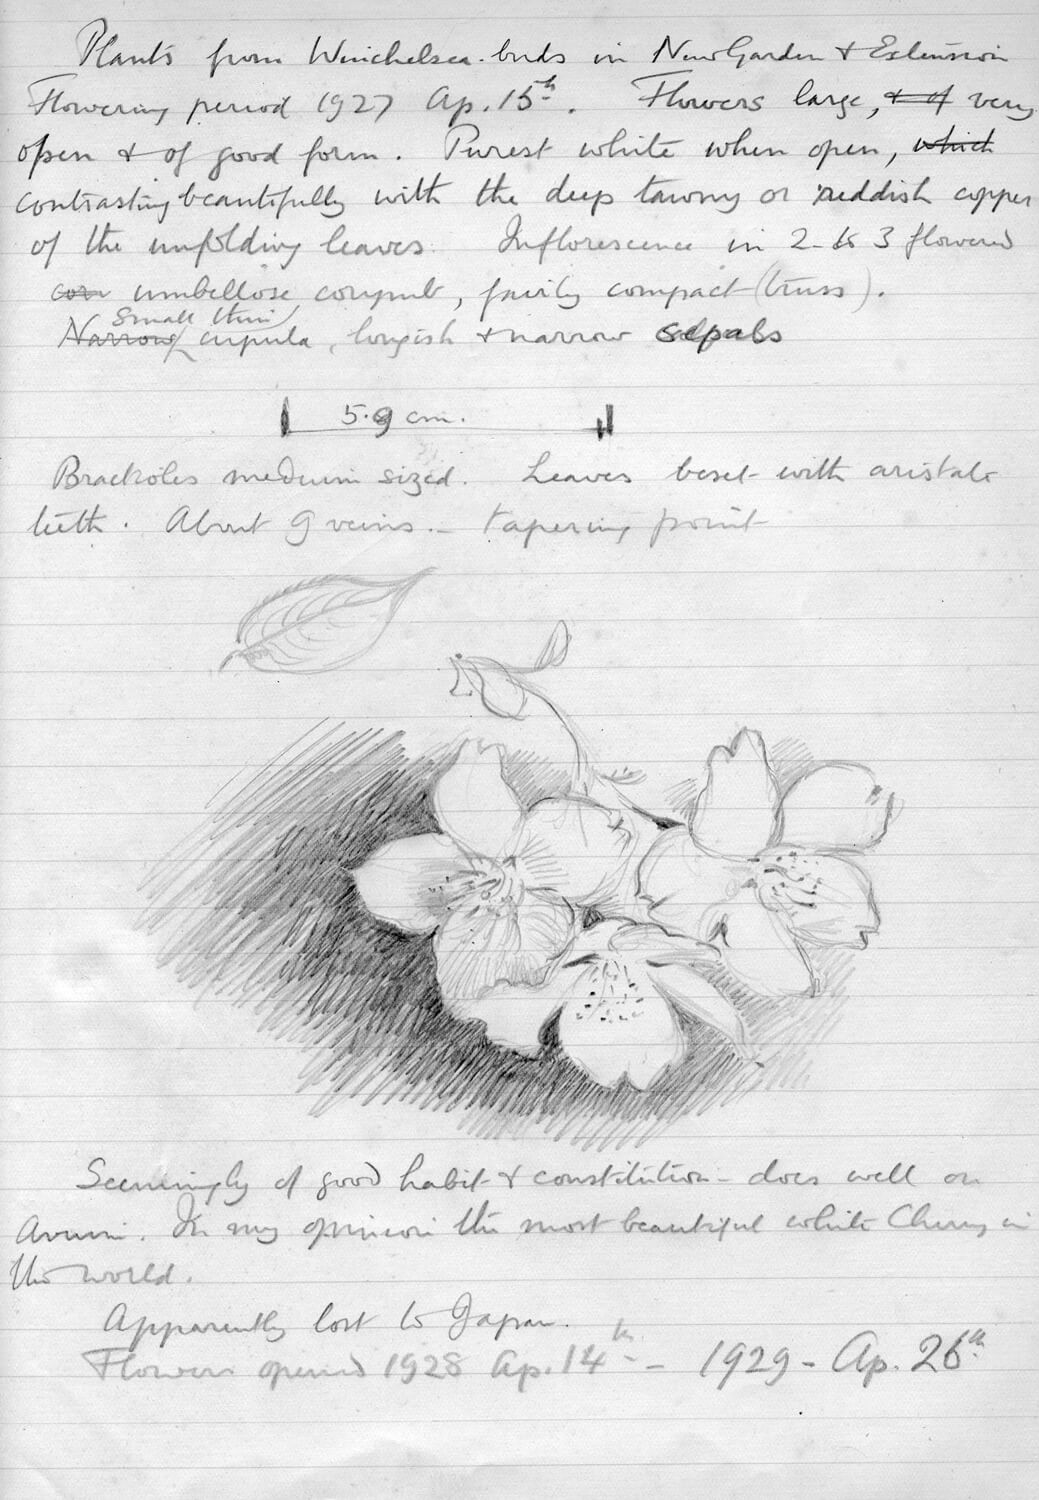 Plants from Winchelsea buds in New Garden & Extension
Flowering period 1927 Ap. 15th. Flowers large, & of very
open & of good form. Purest white when open, which
contrasting beautifully with the deep tawny or reddish copper
of the unfolding leaves. Inflorescence in 2 to 3 flowered
cor umbellose corymb, fairly compact (truss).
Small thin
Narrow cupula, longish & narrow sepals
5.9 cm.
Bracteoles medium sized. Leaves beset with aristate
teeth. About 9 veins. – tapering point
Seemingly of good habit & constitution – does well on
Avium. In my opinion the most beautiful white Cherry in
the world.
Apparently lost to Japan.
Flowers opened 1928 Ap. 14th – 1929 – Ap. 26th